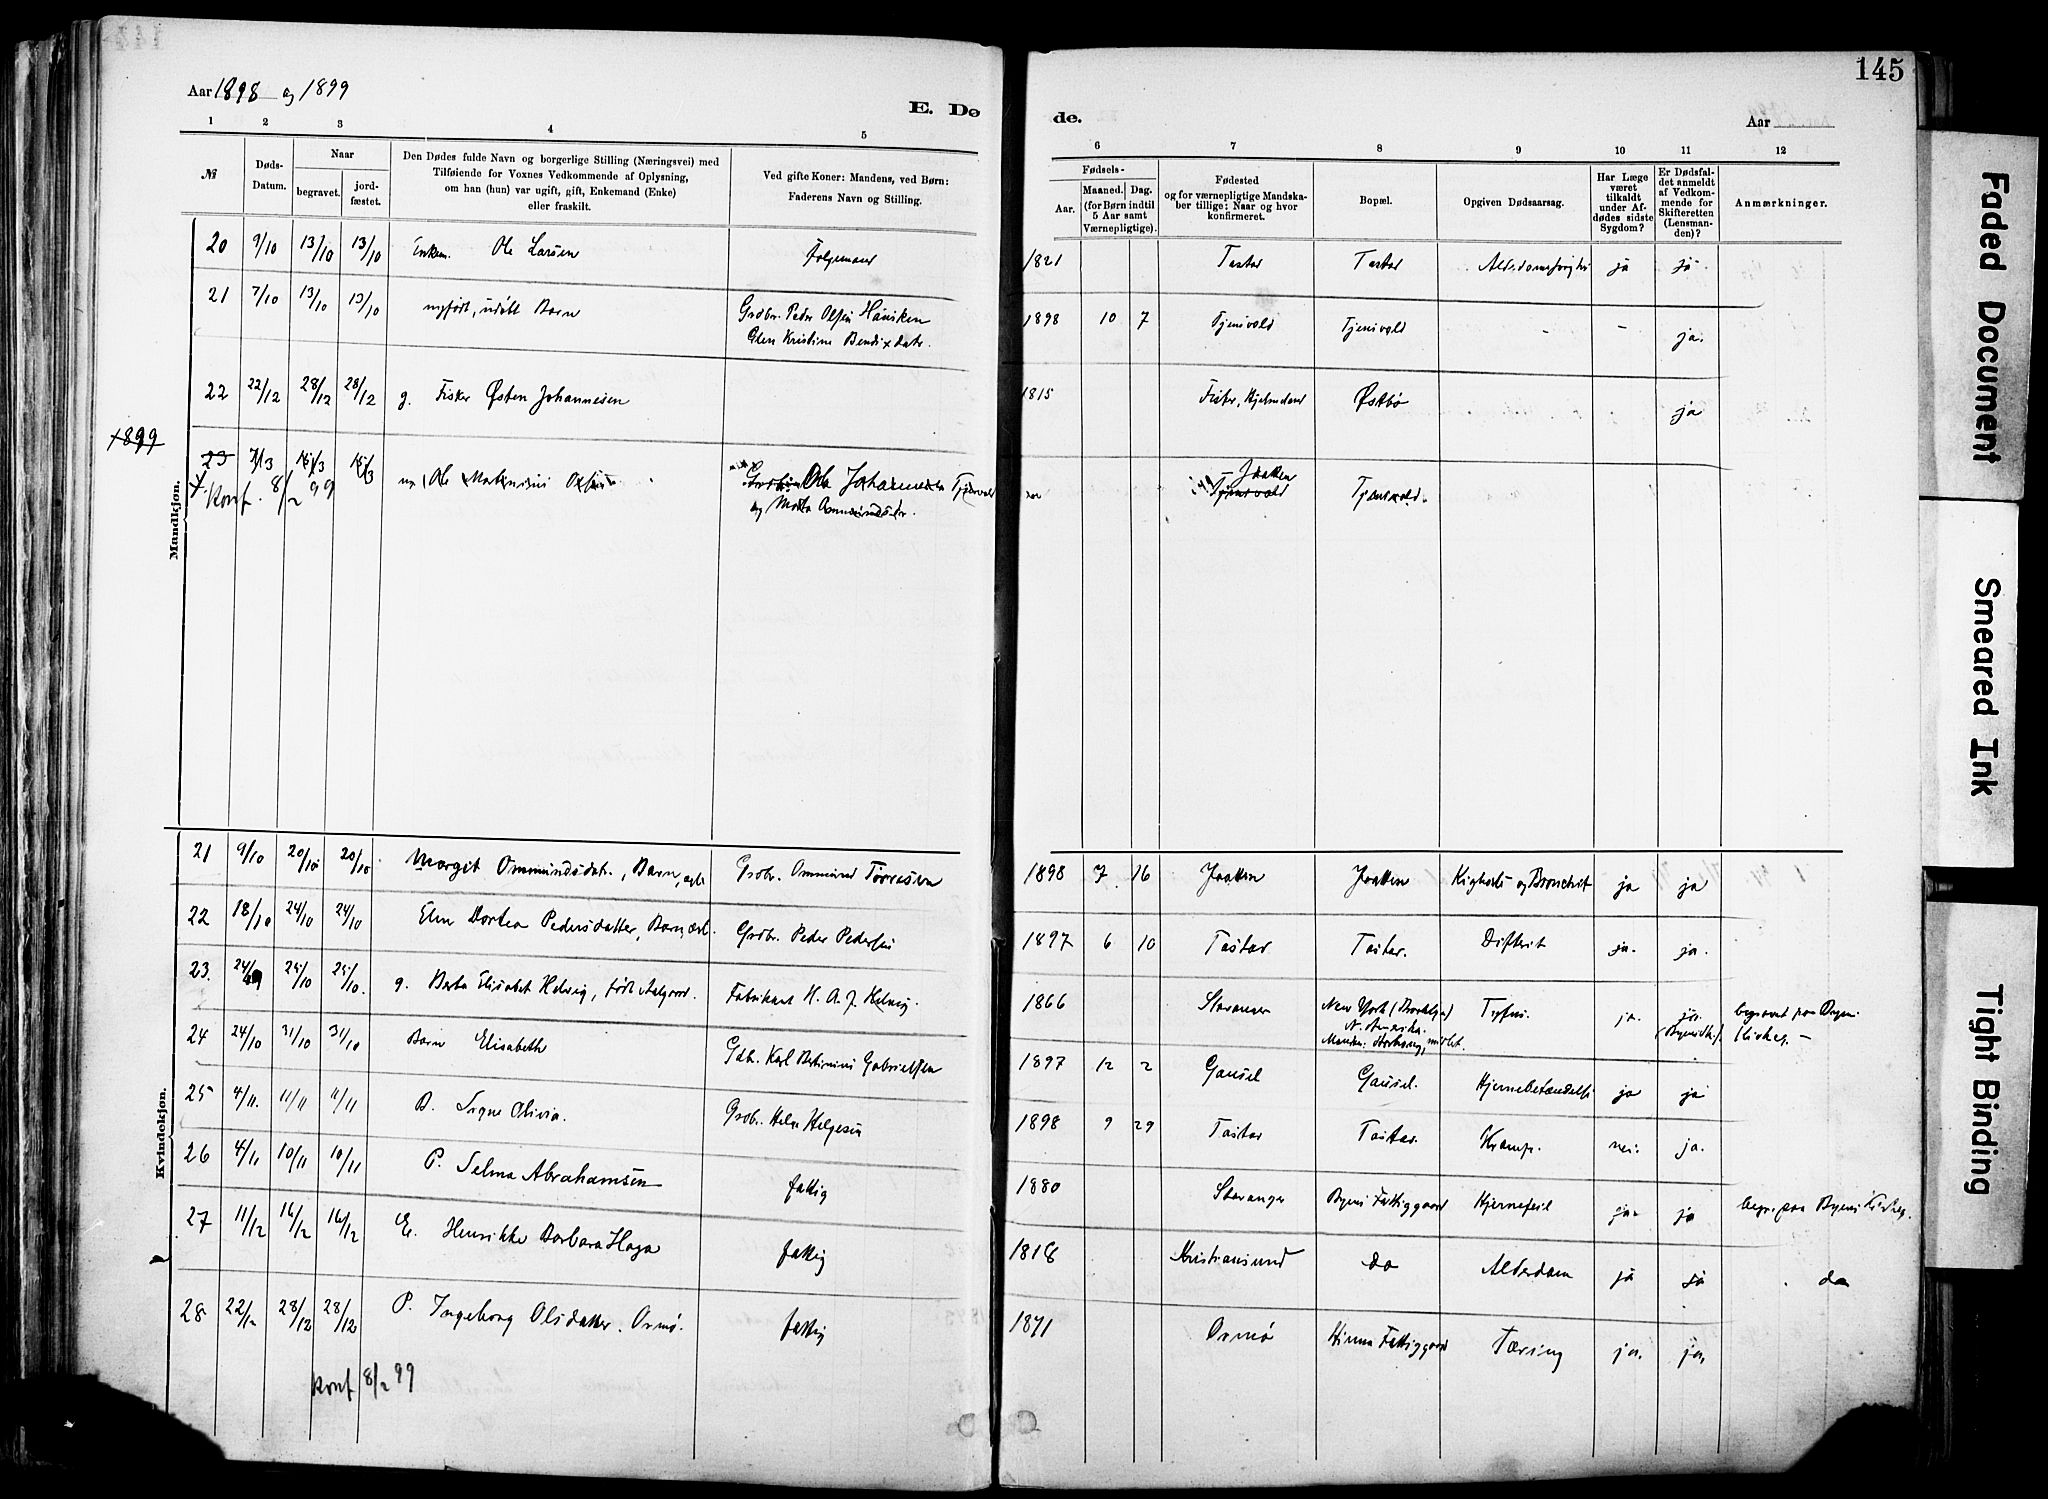 145
Aar 1898 og 1899
E. Dø
de.
Aar
1 2 3 4 5
6 7 8 9 10 11 12
№
Døds-Datum.
Naar
begravet.
jord-fæstet.
Den Dødes fulde Navn og borgerlige Stilling (Næringsvei) med
Tilføiende for Voxnes Vedkommende af Oplysning,
om han (hun) var ugift, gift, Enkemand (Enke)
eller fraskilt.
Ved gifte Koner: Mandens, ved Børn:
Faderens Navn og Stilling.
Fødsels-
Aar.
Maaned. Dag.
(for Børn indtil
5 Aar samt
Værnepligtige).
Fødested
og for værnepligtige Mandska-
ber tillige: Naar og hvor
konfirmeret.
Bopæl.
Opgiven Dødsaarsag.
Har Læge
været
tilkaldt
under Af-
dødes sidste
Sygdom?
Er Dødsfal-
det anmeldt
af Vedkom-
mende for
Skifteretten
(Lensman-
den)?
Anmærkninger.
Mandkjøn.
20 9/10 13/10 13/10 Enkem. Ole Larsen Folgemand 1821 Tastad Tastad ja ja
21 7/10 13/10 13/10 nyfødt, udøbt Barn Grdbr. Peder Olsen
Elen Kristine Bendixdatr. 1898 10 7 Tjensvold Tjensvold - - ja.
22 22/12 28/12 28/12 g. Fisker Østen Johannesen 1815 Fister, Hjelmeland Østbø ja
1899
23 7/3 15/3 15/3 Ole Johannesen Tjensvold
og Marta Ommundsdtr. Jaatten
Tjensvold Tjensvold.
Konf. 8/2 99
Kvindekjøn.
21 9/10 20/10 20/10 Margit Ommundsdat., Barn, Grdbr. Ommund Tørresen 1898 7 16 Jaatten Jaatten Kighoste og Bronchit ja ja
22 18/10 24/10 24/10 Elen Dortea Pedersdatter, Barn, Grdbr. Peder Pedersen 1897 6 10 Tastad Tastad. Difterit ja. ja.
23. 24/9 25/10 25/10. g. Berta Elisabet Helvig, født Aalgaard. Fabrikant H. A. J. Helvig. 1866 Stavanger New York (Brooklyn)
N. Amerika. Tyfus. ja. ja.
begravet paa Byens
Kirkeg. —
24 24/10 31/10 31/10 Barn Elisabeth Gdb. Karl Bertinius Gabrielsen 1897 12 2 Gausel Gausel. Hjernebetændelse ja ja
25 4/11. 11/11 11/11 B. Signe Olivia. Grdbr. Helge Helgesen 1898 9 29 Tastad Tastad. Kramp. nei. ja.
26 4/11 10/11 10/11 P. Selma Abrahamsen fattig 1880 Stavanger Byens Fattiggaard Hjernefeil ja. ja begr. paa Byens Kirkeg.
27 11/12 16/12 16/12 E. Henrikke Barbara Haga fattig 1818 Kristiansund do Alderdom ja ja do
28 22/12 28/12 28/12 P. Ingeborg Olsdatter. Ormø. fattig 1871 Ormø Hinna Fattiggaard Tæring ja. ja.
Konf 8/2 99
Faded Document
Smeared Ink
Tight Binding